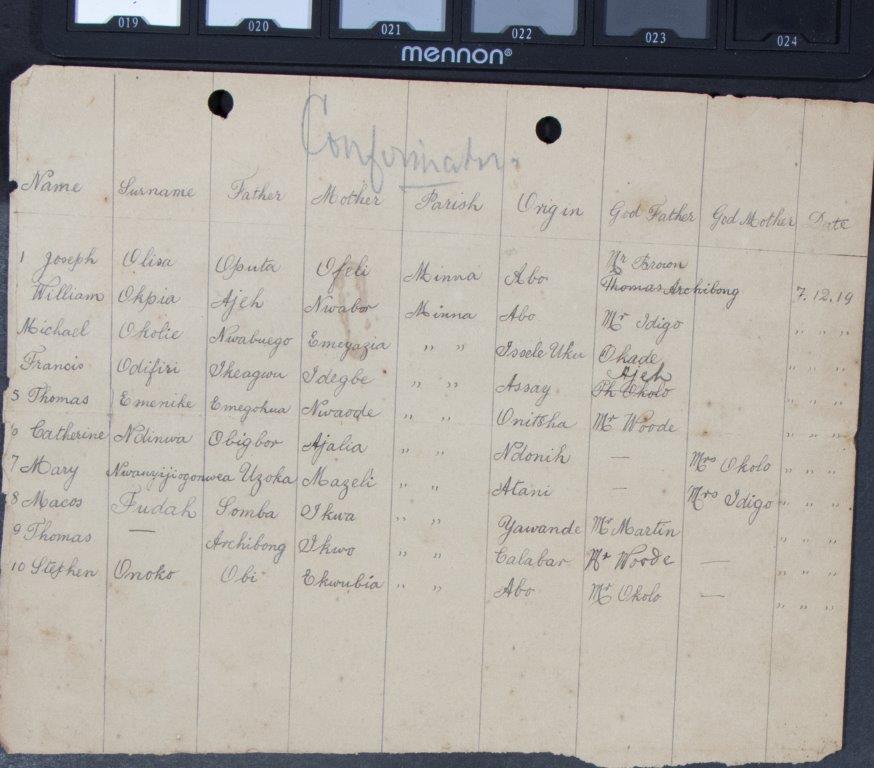 019 020 021 022 023 024
mennon®
Confirmation
Name Surname Father Mother Parish Origin God Father God Mother Date
1 Joseph Olisa Oputa Ofeli Minna Abo Mr Brown
William Okpia Ajeh Nwabor Minna Abo Thomas Archibong 7.12.19
Michael Okolie Nwabuego Emeyazia " " Issele Uku Mr Idigo " " "
Francis Odifiri Ikeagwu Idegbe " " Assay Okade " " "
Ajeh
5 Thomas Emenike Emegokua Nwaode " " Onitsha Ph Okolo " " "
Mr Woode
6 Catherine Ndinwa Obigbor Ajalia " " Ndonih — Mrs Okolo " " "
7 Mary Nwanyijiogonwea Uzoka Mazeli " " Atani — Mrs Idigo " " "
8 Macos Fudah Somba Ikwa " " Yawande Mr Martin " " "
9 Thomas — Archibong Ikwo " " Calabar Mr Woode — " " "
10 Stephen Onoko Obi Ekwubia " " Abo Mr Okolo — " " "